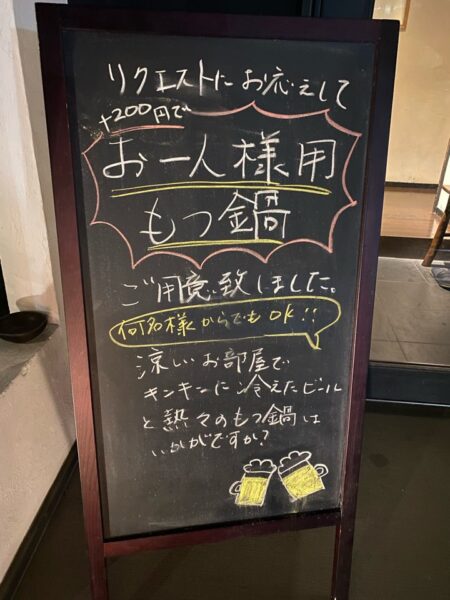 リクエストにお応えして
+200円で
お一人様用
もつ鍋
ご用意致しました。
何名様からでもOK!!
涼しいお部屋で
キンキンに冷えたビール
と熱々のもつ鍋は
いかがですか?